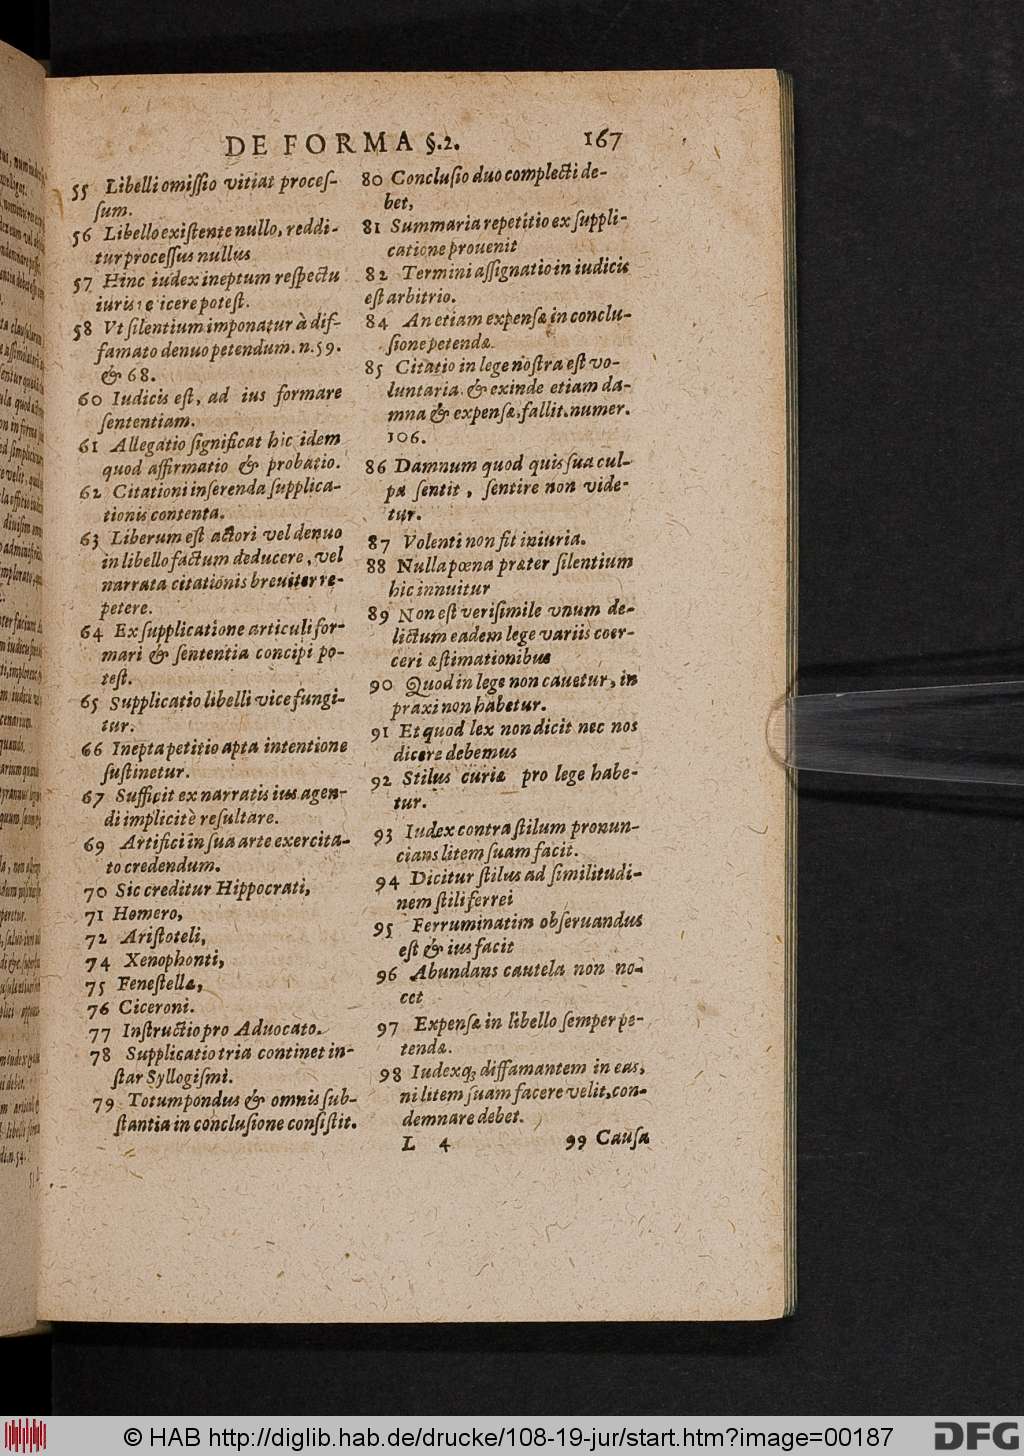 DE FORMA §.2. 167
55 Libelli omiſſio vitiat proceſ-
ſum.
56 Libello exiſtente nullo, reddi-
tur proceſſus nullus
57 Hinc iudex ineptum reſpectu
iuris icere poteſt.
58 Vt ſilentium imponatur à dif-
famato denuo petendum. n. 59.
& 68.
60 Iudicis eſt, ad ius formare
ſententiam.
61 Allegatio ſignificat hic idem
quod affirmatio & probatio.
62 Citationi inſerenda ſupplica-
tionis contenta.
63 Liberum eſt actori vel denuo
in libello factum deducere, vel
narrata citationis breuiter re-
petere.
64 Ex ſupplicatione articuli for-
mari & ſententia concipi po-
teſt.
65 Supplicatio libelli vice fungi-
tur.
66 Inepta petitio apta intentione
ſuſtinetur.
67 Sufficit ex narratis ius agen-
di implicitè reſultare.
69 Artifici in ſua arte exercita-
to credendum.
70 Sic creditur Hippocrati,
71 Homero,
72 Ariſtoteli,
74 Xenophonti,
75 Feneſtellæ,
76 Ciceroni.
77 Inſtructio pro Aduocato.
78 Supplicatio tria continet in-
ſtar Syllogiſmi.
79 Totum pondus & omnis ſub-
ſtantia in concluſione conſiſtit.
80 Concluſio duo complecti de-
bet,
81 Summaria repetitio ex ſuppli-
catione prouenit
82 Termini aſſignatio in iudicis
eſt arbitrio.
84 An etiam expenſæ in conclu-
ſione petendæ.
85 Citatio in lege noſtra eſt vo-
luntaria & exinde etiam da-
mna & expenſæ, fallit. numer.
106.
86 Damnum quod quis ſua cul-
pa ſentit, ſentire non vide-
tur.
87 Volenti non fit iniuria.
88 Nulla pœna præter ſilentium
hic innuitur
89 Non eſt veriſimile vnum de-
lictum eadem lege variis coer-
ceri æſtimationibus
90 Quod in lege non cauetur, in
praxi non habetur.
91 Et quod lex non dicit nec nos
dicere debemus
92 Stilus curiæ pro lege habe-
tur.
93 Iudex contra ſtilum pronun-
cians litem ſuam facit.
94 Dicitur ſtilus ad ſimilitudi-
nem ſtili ferrei
95 Ferruminatim obſeruandus
eſt & ius facit
96 Abundans cautela non no-
cet
97 Expenſæ in libello ſemper pe-
tendæ.
98 Iudexq́; diffamantem in eas,
ni litem ſuam facere velit, con-
demnare debet.
L 4 99 Cauſa
© HAB http://diglib.hab.de/drucke/108-19-jur/start.htm?image=00187
DFG